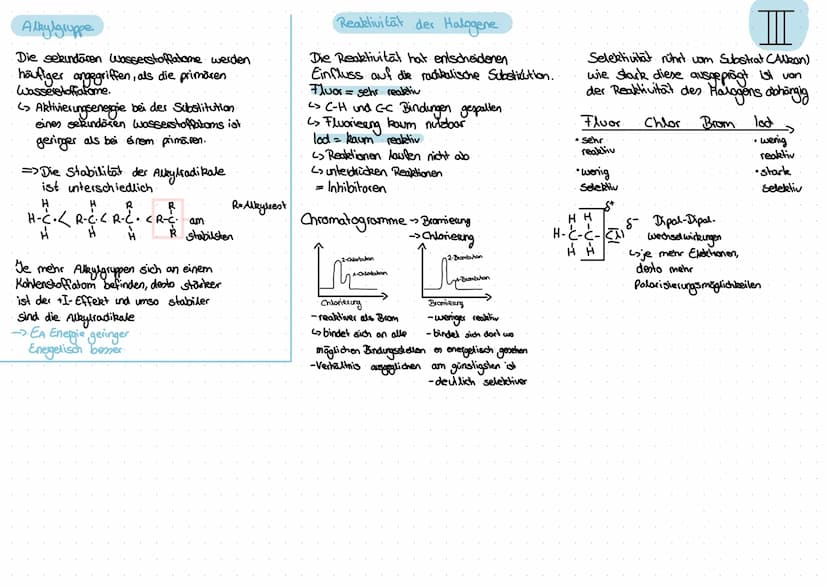 Alkylgruppe
Die sekundären Wasserstoffatome werden
häufiger angegriffen, als die primären
Wasserstoffatome.
↳ Aktivierungsenergie bei der Substitution
eines sekundären Wasserstoffatoms ist
geringer als bei einem primären.
=> Die Stabilität der Alkylradikale
ist unterschiedlich
R=Alkylrest
H H R R
H-C· < R-C· < R-C· < R-C· am
H H H R stabilsten
Je mehr Alkylgruppen sich an einem
Kohlenstoffatom befinden, desto stärker
ist der +I-Effekt und umso stabiler
sind die Alkylradikale
→ EA Energie geringer
Energetisch besser
Reaktivität der Halogene
Die Reaktivität hat entscheidenen
Einfluss auf die radikalische Substitution.
Fluor = sehr reaktiv
↳ C-H und C-C Bindungen gespalten
↳ Fluorierung kaum nutzbar
Iod = kaum reaktiv
↳ Reaktionen laufen nicht ab
↳ unterdrücken Reaktionen
= Inhibitoren
Chromatogramme → Bromierung
→ Chlorierung
Chlorierung
- reaktiver als Brom
↳ bindet sich an alle
möglichen Bindungsstellen
- Verhältnis ausgeglichen
Bromierung
- weniger reaktiv
- bindet sich dort wo
es energetisch gesehen
am günstigsten ist
- deutlich selektiver
III
Selektivität rührt vom Substrat (Alkan)
wie stark diese ausgeprägt ist von
der Reaktivität des Halogens abhängig
Fluor Chlor Brom Iod
• sehr
reaktiv
• wenig
selektiv
• wenig
reaktiv
• stark
selektiv
δ+
H H δ-
H-C-C-Cl
H H
Dipol-Dipol-
wechselwirkungen
↳ je mehr Elektronen,
desto mehr
Polarisierungsmöglichkeiten